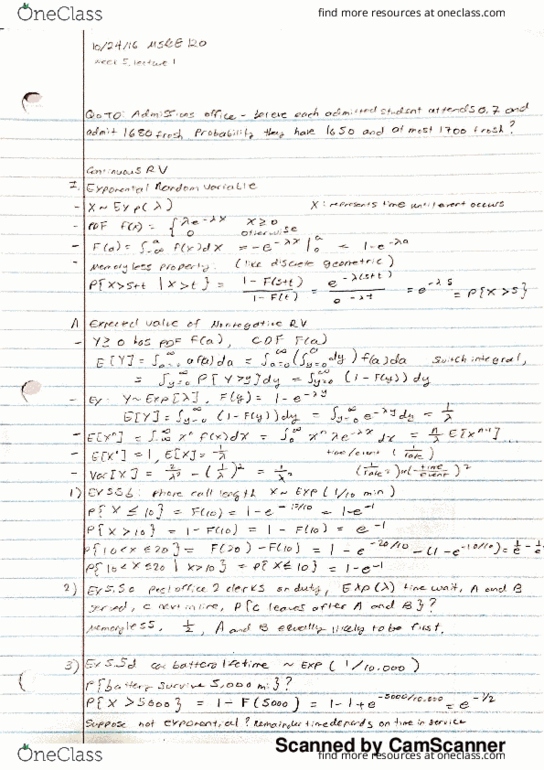 OneClass
find more resources at oneclass.com
10/24/16 MS&E 120
week 5, lecture 1
QOTD: Admissions office - believe each admitted student attends 0.7 and
admit 1680 frosh Probability they have 1650 and at most 1700 frosh?
Continuous RV
I. Exponential Random variable
- X ~ Exp(λ) X: represents time until event occurs
- PDF f(x) = { λe^-λx x ≥ 0
0 otherwise
- F(a) = ∫_-∞^a f(x)dx = -e^-λx |_0^a = 1-e^-λa
- Memoryless property: (like discrete geometric)
P{X>s+t | X>t} = 1-F(s+t) / 1-F(t) = e^-λ(s+t) / e^-λt = e^-λs = P{X>s}
Expected value of Nonnegative RV
- Y≥0 has PDF f(a), CDF F(a)
E[Y] = ∫_-∞^∞ a f(a)da = ∫_a=0^∞ (∫_y=0^a dy) f(a)da Switch integral,
= ∫_y=0^∞ P{Y>y}dy = ∫_y=0^∞ (1-F(y))dy
- Ex: Y~Exp[λ], F(y) = 1-e^-λy
E[Y] = ∫_y=0^∞ (1-F(y))dy = ∫_y=0^∞ e^-λy dy = 1/λ
- E[X^n] = ∫_-∞^∞ x^n f(x)dx = ∫_0^∞ x^n λe^-λx dx = n/λ E[X^n-1]...
- E[X^0] = 1, E[X] = 1/λ time/event (1/rate)
- Var[X] = 2/λ² - (1/λ)² = 1/λ²
1) Ex 5.5b: phone call length X ~ Exp(1/10 min)
P{X ≤ 10} = F(10) = 1-e^-10/10 = 1-e^-1
P{X>10} = 1-F(10) = 1-F(10) = e^-1
P{10<X≤20} = F(20)-F(10) = 1-e^-20/10 - (1-e^-10/10) =
P{10<X≤20 | X>10} = P{X≤10} = 1-e^-1
2) Ex 5.5c post office 2 clerks on duty, Exp(λ) time wait, A and B
served, C next in line, P{C leaves after A and B}?
Memoryless, 1/2, A and B equally likely to be first.
3) Ex 5.5d car battery lifetime ~ Exp(1/10,000)
P{battery survive 5,000 mi}?
P{X>5000} = 1-F(5000) = 1-1+e^-5000/10,000 = e^-1/2
Suppose not exponential? Remainder time depends on time in service
Scanned by CamScanner
OneClass
find more resources at oneclass.com